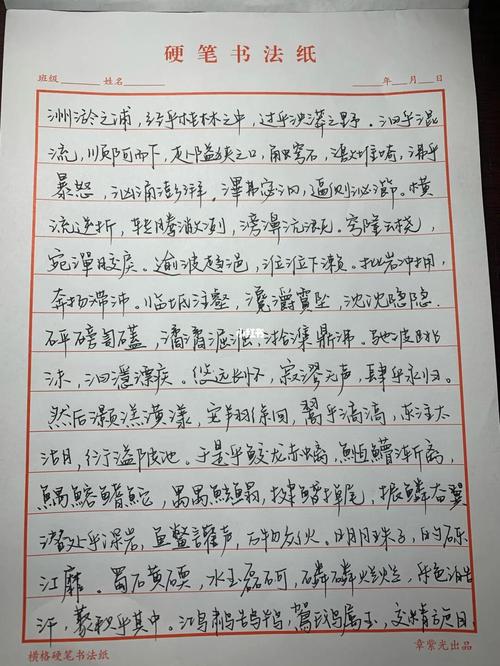 硬笔书法纸
班级 姓名 年 月 日
洲淤之浦，经乎桂林之中，过乎泱漭之野。汩乎混
流，顺阿而下，赴隘狭之口，触穹石，激堆埼，沸乎
暴怒，汹涌澎湃。滭弗宓汩，逼侧泌瀄。横
流逆折，转腾潎冽，滂濞沆溉。穹隆云桡，
宛潬胶戾。逾波趋浥，涖涖下濑。批岩冲拥，
奔扬滞沛。临坻注壑，瀺灂霣坠，沈沈隐隐，
砰磅訇礚，潏潏淈淈，湁潗鼎沸。驰波跳
沫，汩濦漂疾。悠远长怀，寂漻无声，肆乎永归。
然后灏溔潢漾，安翔徐回，翯乎滈滈，东注太
湖，衍溢陂池。于是乎蛟龙赤螭，渐离，
鰅鳙魠，禺禺魼鳎，揵鳍掉尾，振鳞奋翼
潜处乎深岩，鱼鳖讙声，万物众伙。明月珠子，的皪
江靡。蜀石黄碝，水玉磊砢，磷磷烂烂，采色澔
汗，藂积乎其中。鸿鹔鹄鸨，鴐鹅属玉，交精旋目，
横格硬笔书法纸 章紫光出品